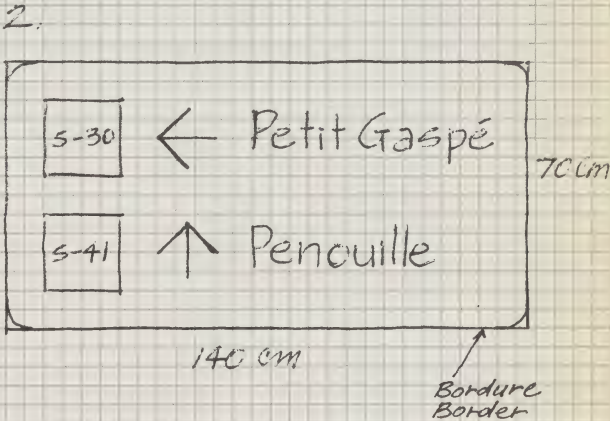 2.
S-30 ← Petit Gaspé
70 cm
S-41 ↑ Penouille
140 cm
Bordure
Border